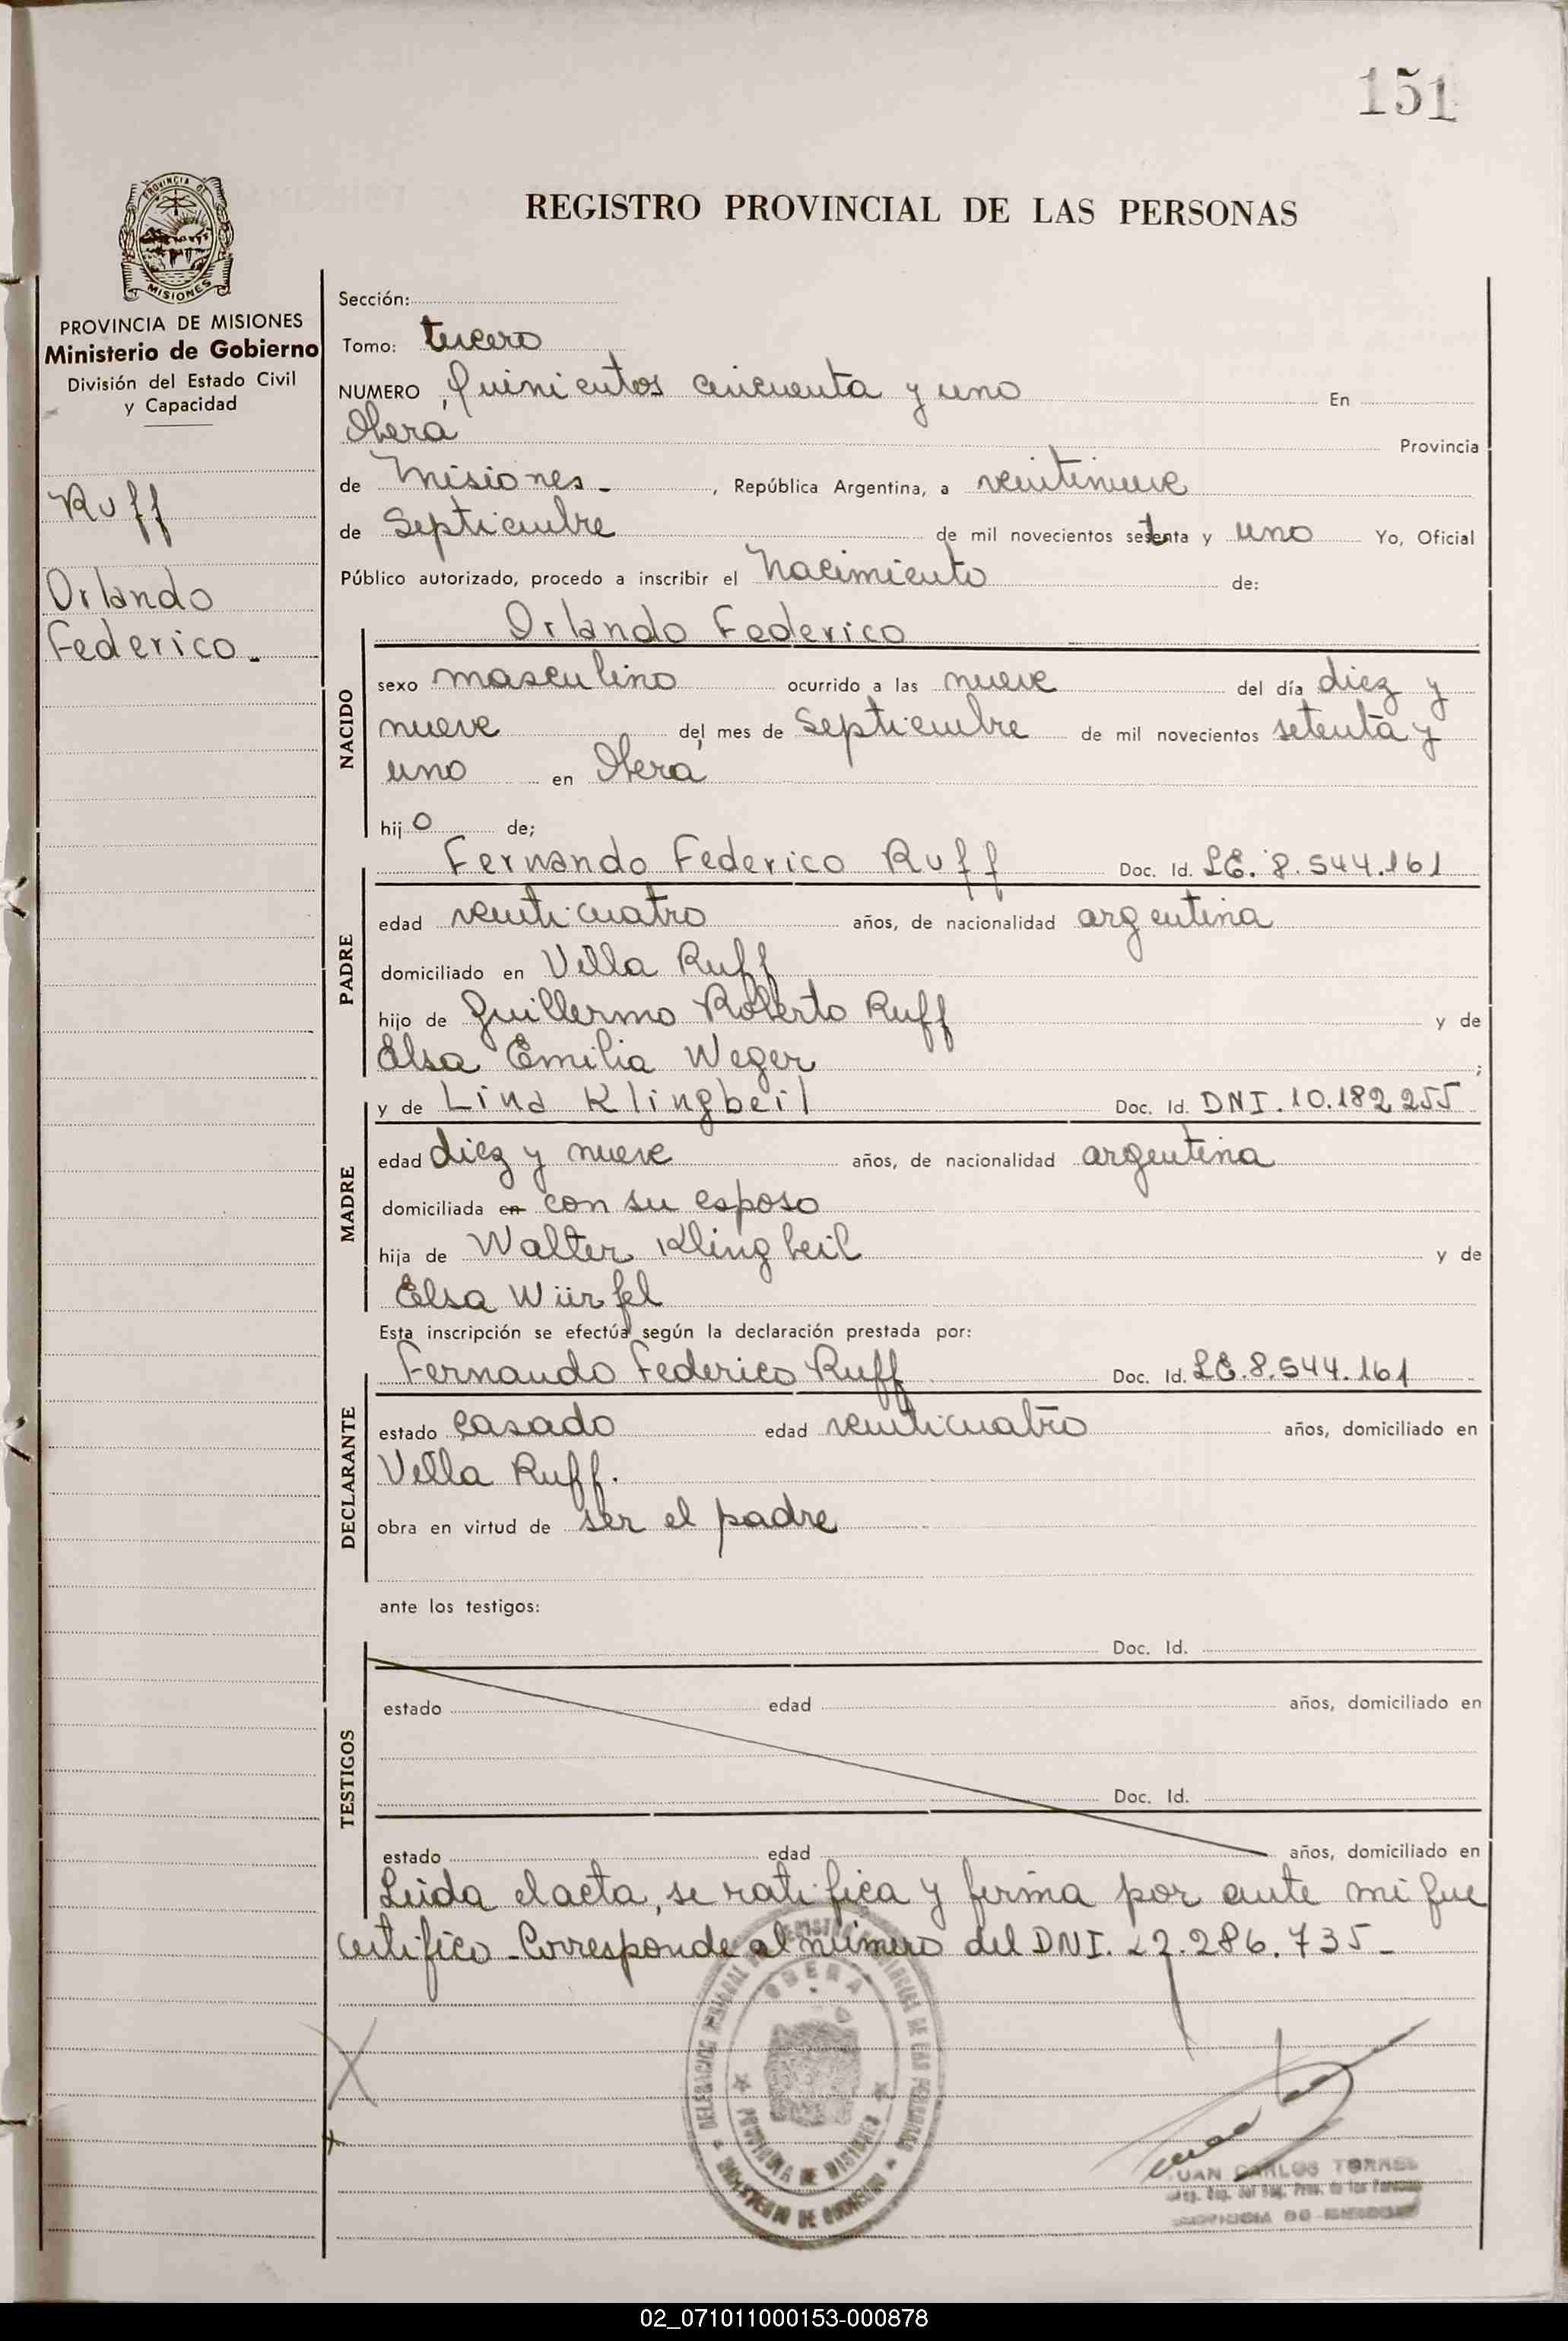 151
REGISTRO PROVINCIAL DE LAS PERSONAS
PROVINCIA DE
MISIONES
PROVINCIA DE MISIONES
Ministerio de Gobierno
División del Estado Civil
y Capacidad
Ruff
Orlando
Federico.-
Sección:
Tomo: tercero
NUMERO Quinientos cincuenta y uno En
Oberá Provincia
de Misiones - , República Argentina, a veintinueve
de Septiembre de mil novecientos setenta y uno Yo, Oficial
Público autorizado, procedo a inscribir el Nacimiento de:
NACIDO
Orlando Federico
sexo masculino ocurrido a las nueve del día diez y
nueve del mes de Septiembre de mil novecientos setenta y
uno en Oberá
hijo de;
PADRE
Fernando Federico Ruff Doc. Id. LE. 8.544.161
edad venticuatro años, de nacionalidad argentina
domiciliado en Villa Ruff
hijo de Guillermo Roberto Ruff y de
Elsa Emilia Weger ;
MADRE
y de Lina Klingbeil Doc. Id. DNI. 10.182.255
edad diez y nueve años, de nacionalidad argentina
domiciliada en con su esposo
hija de Walter Klingbeil y de
Elsa Würfel
Esta inscripción se efectúa según la declaración prestada por:
DECLARANTE
Fernando Federico Ruff Doc. Id. LE. 8.544.161
estado casado edad venticuatro años, domiciliado en
Villa Ruff.
obra en virtud de ser el padre
ante los testigos:
TESTIGOS
Doc. Id.
estado edad años, domiciliado en
Doc. Id.
estado edad años, domiciliado en
Leida el acta, se ratifica y firma por ante mi que
certifico - Corresponde al número del DNI. 22.286.735 -
OBERA
PROVINCIA DE MISIONES
MINISTERIO DE GOBIERNO
JUAN CARLOS TORRES
02_071011000153-000878